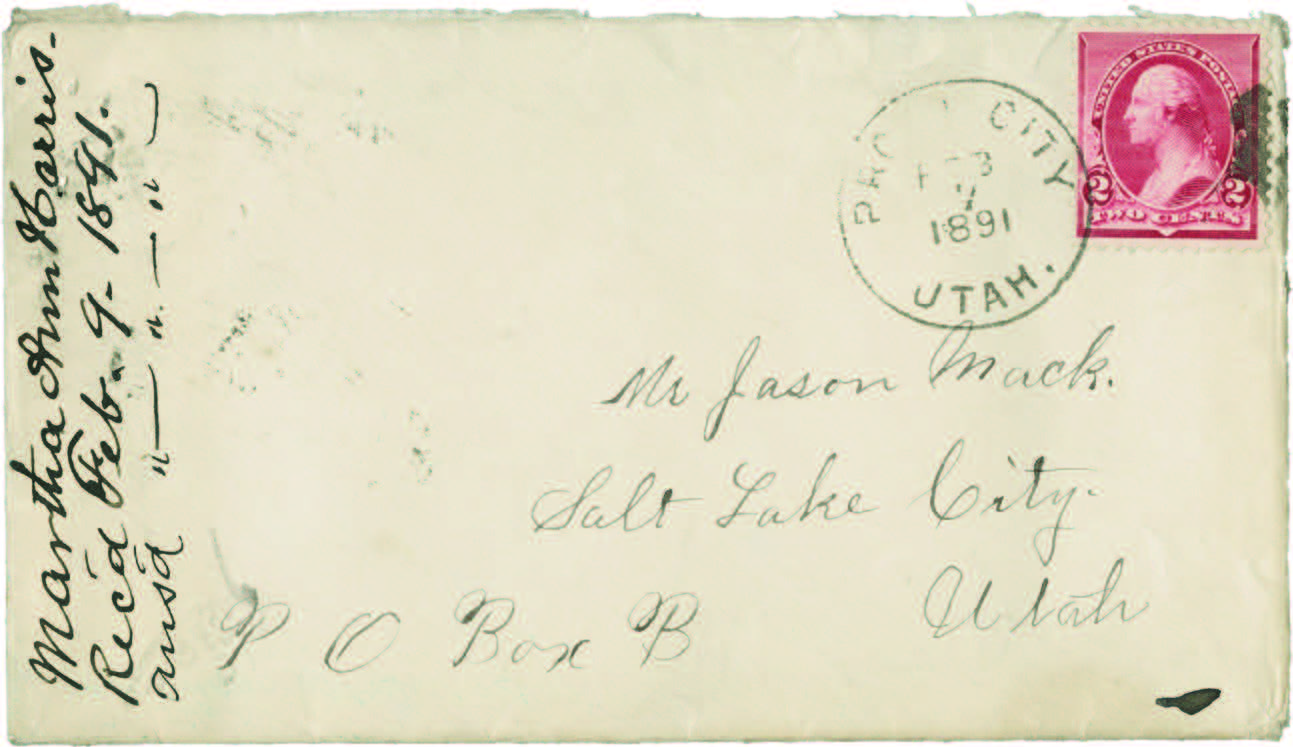 Martha Ann Harris.
Rec'd Feb. 9- 1891.
ans'd " — " — "
CITY
FEB
1891
UTAH.
UNITED STATES POSTAGE
2 2
TWO CENTS
Mr Jason Mack.
Salt Lake City.
Utah
P O Box B